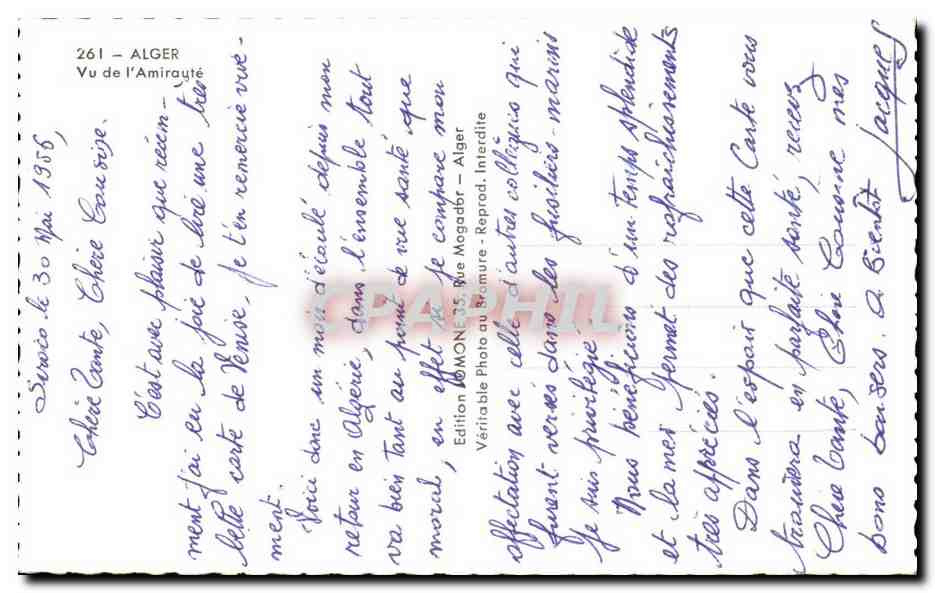 261 – ALGER
Vu de l'Amirauté
Edition JOMONE 35, Rue Mogador – Alger
Véritable Photo au Bromure - Reprod. Interdite
CPAPHIL
le 30 Mai 1956,
Chère Tante, Chère Cousine.
C'est avec plaisir que récem-
ment j'ai eu la joie de lire une très
belle carte de Venise, je t'en remercie vive-
ment.
Voici donc un mois d'écoulé depuis mon
retour en Algérie, dans l'ensemble tout
va bien tant au point de vue santé que
moral, en effet si je compare mon
affectation avec celle d'autres collègues qui
furent versés dans les fusiliers-marins
je suis privilégié.
Nous bénéficions d'un temps splendide
et la mer permet des rafraichissements
très appréciés.
Dans l'espoir que cette Carte vous
trouvera en parfaite santé, recevez
Chère Tante, Chère Cousine mes
bons baisers. A Bientôt
Jacques